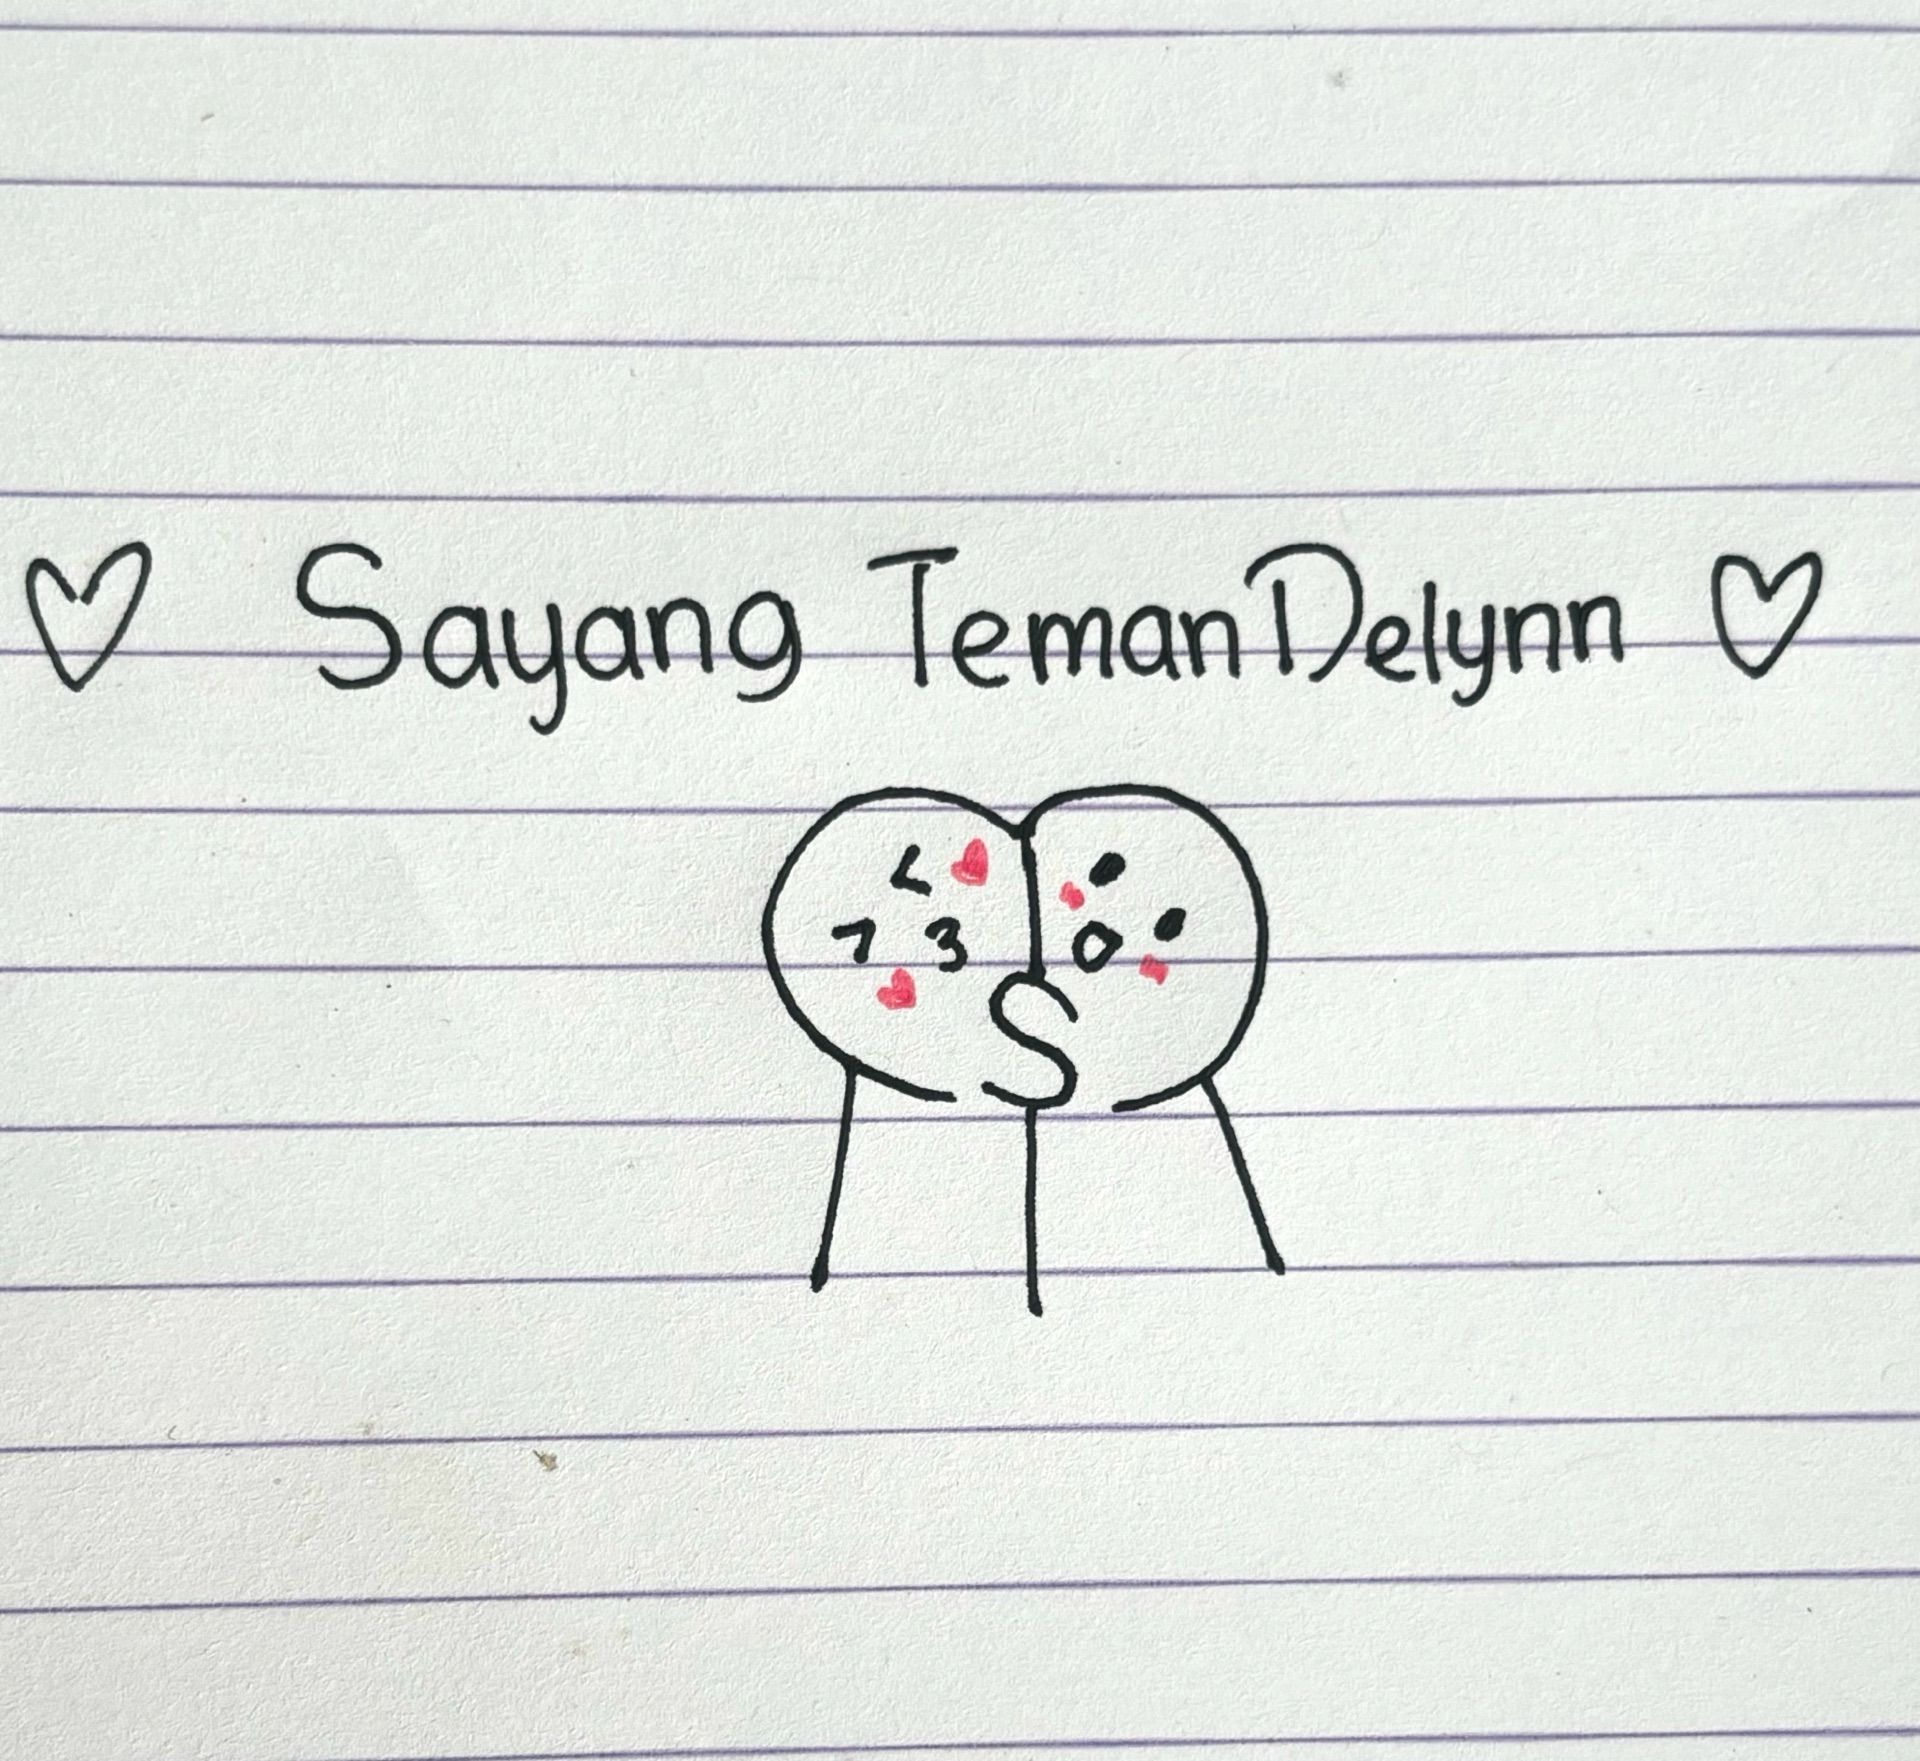 ♡ Sayang TemanDelynn ♡